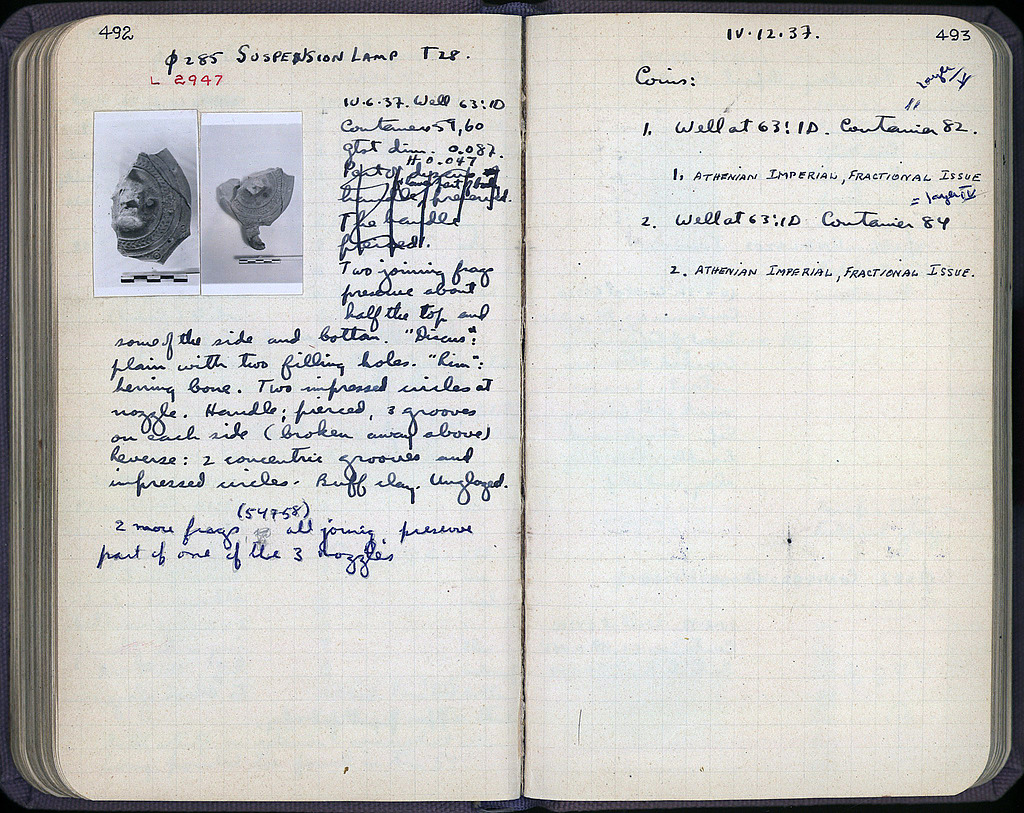 492
φ 285 SUSPENSION LAMP T28.
L 2947
IV.6.37. Well 63:1D
Containers 59,60
gtst dim. 0.087.
H. 0.047
Part of discus
handle preserved.
The handle
pierced.
Two joining frags
preserve about
half the top and
some of the side and bottom. "Discus":
plain with two filling holes. "Rim":
herring bone. Two impressed circles at
nozzle. Handle; pierced, 3 grooves
on each side (broken away above)
Reverse: 2 concentric grooves and
impressed circles. Buff clay. Unglazed.
(54758)
2 more frags all joining, preserve
part of one of the 3 nozzles
IV.12.37.
493
Coins:
layer V
"
1. Well at 63:1D. Container 82.
1. ATHENIAN IMPERIAL, FRACTIONAL ISSUE
= layer IV
2. Well at 63:1D Container 84
2. ATHENIAN IMPERIAL, FRACTIONAL ISSUE.